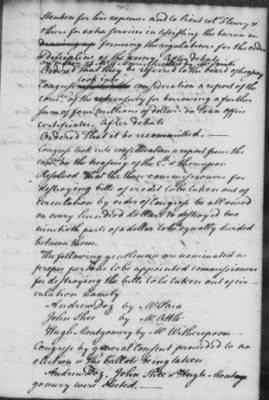 Steuben for his expences and to lieut col Fleury &
others for extra services in assisting the baron in
forming the regulations for the order
& discipline of the army. After debate
Ordered That they be referred to the board of
Congress took into consideration a report of the
comtee of the treasury for borrowing a farther
sum of four million of dollars on loan office
certificates. After debate
Ordered That it be recommitted. —
Congress took into consideration a report from the
comtee on the treasury of the & thereupon
Resolved That the three commissioners for
destroying bills of credit to be taken out of
circulation by order of Congress be allowed
on every hundred dollars so destroyed two
ninetieth parts of a dollar to be equally divided
between them.
The following gentlemen are nominated as
proper persons to be appointed commissioners
for destroying the bills to be taken out of cir-
culation namely
Andrew Doz by Mr
John Shee by Mr Attle
Hugh Montgomery by Mr Witherspoon
Congress by general consent proceded to an
election & the ballots being taken
Andrew Doz, John Shee & Hugh Montgo
gomery were elected. —